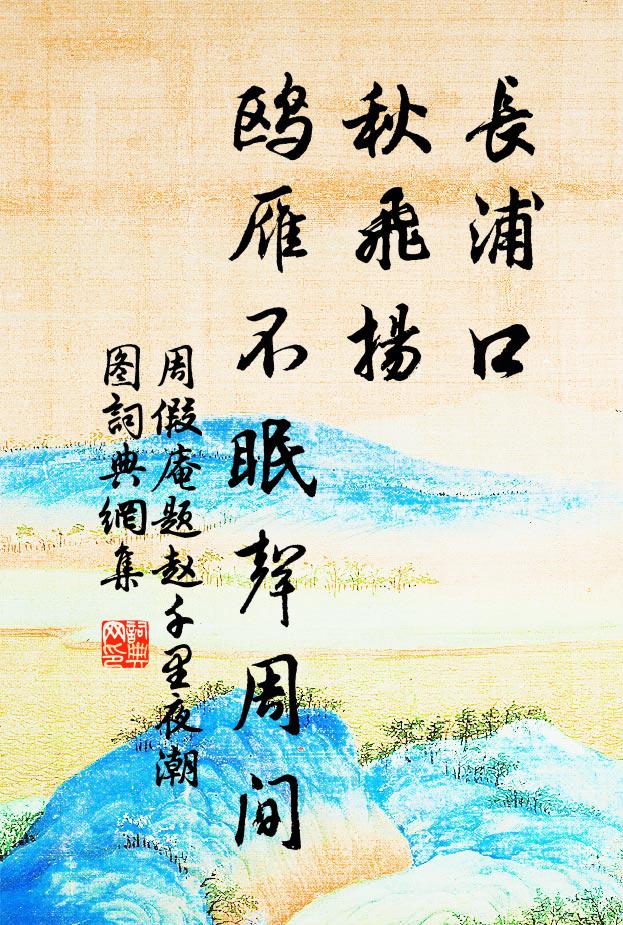 長浦口
秋飛揚
鸥雁不眠聲周间
周假庵题赵千里夜潮
图詞典網集
詞典
网印